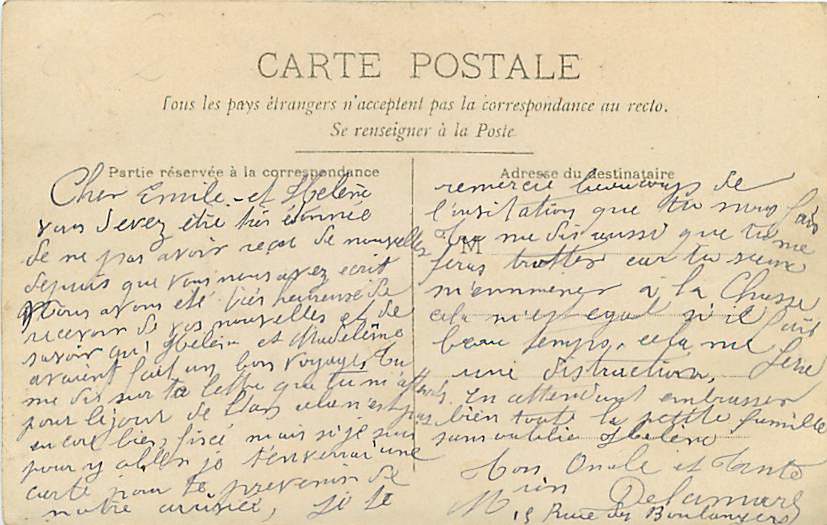 CARTE POSTALE
Tous les pays étrangers n'acceptent pas la correspondance au recto.
Se renseigner à la Poste
Partie réservée à la correspondance
Cher Emile et Helene
vous devez être très étonnée
de ne pas avoir reçut de nouvelles
depuis que vous nous avez ecrit
Nous avons été très heureuse de
recevoir de vos nouvelles et de
savoir qui Helene et Madeleine
avaient fait un bon voyage, Tu
me dis sur ta lettre que tu m'attends
pour le jour de cela n'est pas
encore bien fixé mais si je suis
pour y aller je t'enverrai une
carte pour te prevenir de
notre arrivée, Je te
Adresse du destinataire
M
remercie beaucoup de
l'invitation que tu nous fais
Tu me dis aussi que tu me
feras trotter car tu veux
m'emmener à la Chasse
cela m'est egal s'il fait
beau temps, cela me fera
une distraction,
En attendant embrasser
bien toute la petite famille
sans oublie Helene
Ton Oncle et Tante
Delamare
15 Rue des Boulangers